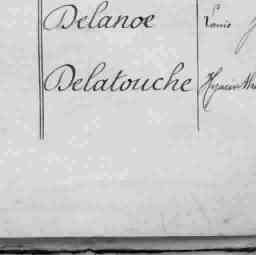 Delanoe Louis
Delatouche Hyacinthe